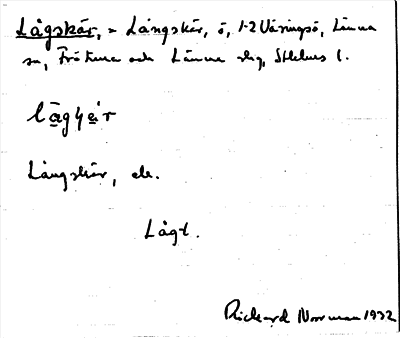 Lågskär, = Långskär, ö, 1-2 Väringsö, Länna
sn, Frötuna och Länna slg, Sthlms l.
lågꞩär
Långskär, ek.
Lågt.
Rickard Norrman 1932